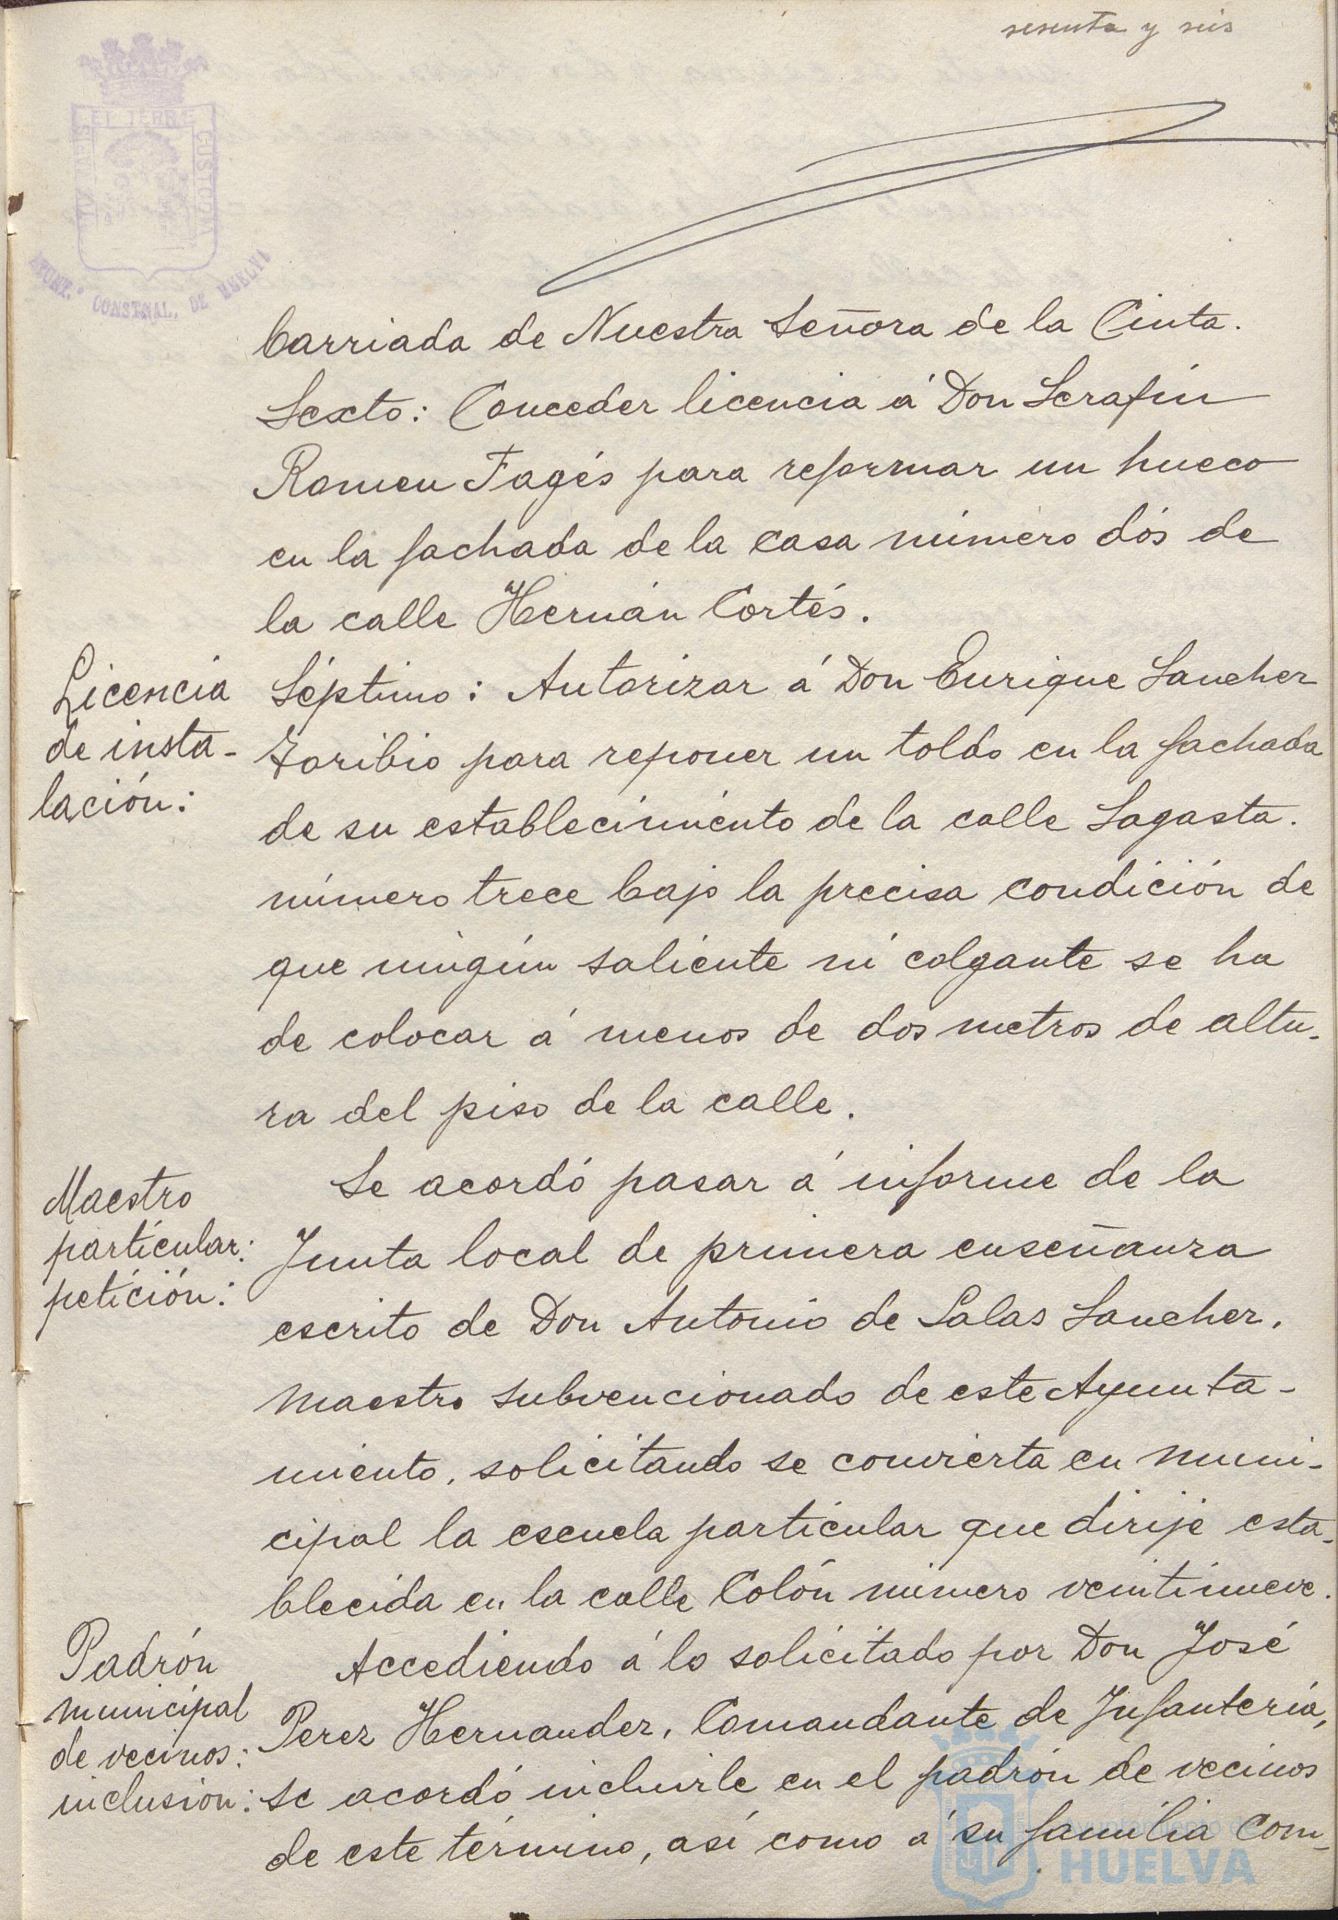 sesenta y seis
PORTUS MARIS ET TERRE CUSTODIA
AYUNT.º CONSTNAL. DE HUELVA
barriada de Nuestra Señora de la Cinta.
Sexto: Conceder licencia á Don Serafín
Romeu Fagés para reformar un hueco
en la fachada de la casa número dós de
la calle Hernán Cortés.
Licencia
de insta-
lación:
Séptimo: Autorizar á Don Enrique Sanchez
Toribio para reponer un toldo en la fachada
de su establecimiento de la calle Sagasta.
número trece bajo la precisa condición de
que ningún saliente ni colgante se ha
de colocar á menos de dos metros de altu-
ra del piso de la calle.
Maestro
particular:
petición:
Se acordó pasar á informe de la
Junta local de primera enseñanza
escrito de Don Antonio de Salas Sanchez,
maestro subvencionado de este Ayunta-
miento, solicitando se convierta en muni-
cipal la escuela particular que dirije esta-
blecida en la calle Colón número veintinueve.
Padrón
municipal
de vecinos:
inclusión:
Accediendo á lo solicitado por Don José
Perez Hernandez, Comandante de Infantería,
se acordó incluirle en el padrón de vecinos
de este término, así como á su familia com-
Ayuntamiento de
HUELVA